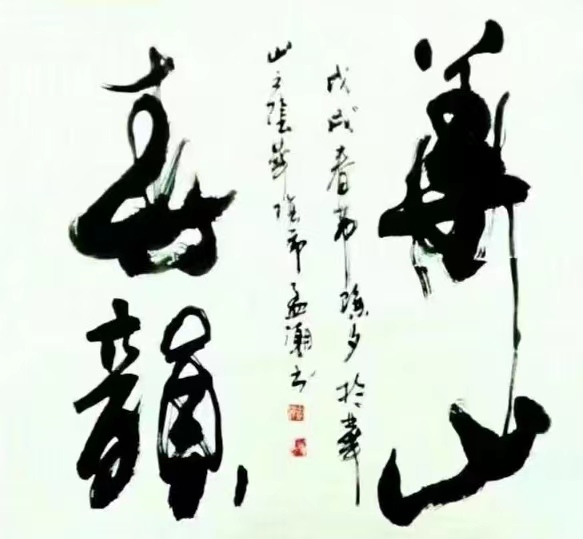 華山
戊戌春节除夕於華
山之陰華陰市孟潮书
春韻